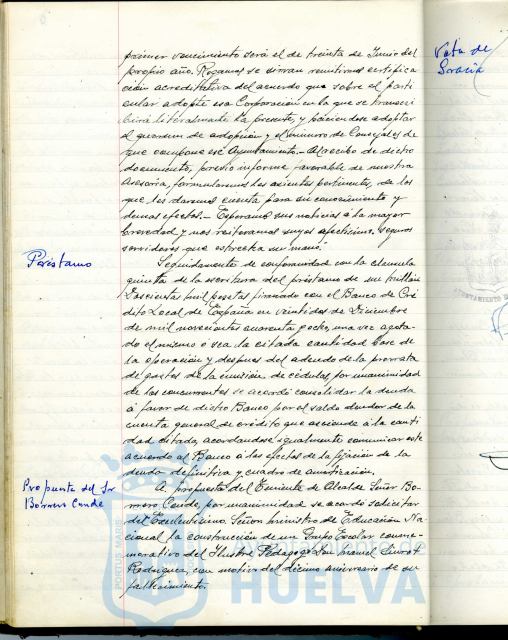 primer vencimiento será el de treinta de Junio del
propio año. Rogamos se sirvan remitirnos certifica
ción acreditativa del acuerdo que sobre el parti
cular adopte esa Corporación en la que se transcri
birá literalmente la presente, y haciendose adoptar
el quorum de adopción y el número de Concejales de
que compone ese Ayuntamiento.- Al recibo de dicho
documento, previo informe favorable de nuestra
Asesoria, formularemos los asientos pertinentes, de los
que les daremos cuenta para su conocimiento y
demas efectos.- Esperamos sus noticias á la mayor
brevedad y nos reiteramos suyos afectisimos, seguros
servidores que estrecha su mano.
Préstamo
Seguidamente de conformidad con la clausula
quinta de la escritura del préstamo de un millón
doscientas mil pesetas firmado con el Banco de Cré
dito Local de España en veintidos de Diciembre
de mil novecientos cuarenta y ocho, una vez agota
do el mismo ó sea la citada cantidad base de
la operación y despues del adeudo de la prorrata
de gastos de la emisión de cédulas por unanimidad
de los concurrentes se acordó consolidar la deuda
á favor de dicho Banco por el saldo deudor de la
cuenta general de crédito que asciende á la canti
dad citada, acordandose igualmente comunicar este
acuerdo al Banco á los efectos de la fijación de la
deuda definitiva y cuadro de amortización.
Propuesta del Sr
Borrero Conde
A propuesta del Teniente de Alcalde Señor Bo-
rrero Conde, por unanimidad se acordó solicitar
del Excelentisimo Señor Ministro de Educación Na-
cional la construcción de un Grupo Escolar conme-
morativo del Ilustre Pedagogo Don Manuel Siurot
Rodriguez, con motivo del décimo aniversario de su
fallecimiento.
Vota de
Gracia
PORTUS MARIS
Ayuntamiento de
HUELVA
AYUNTAMIENTO